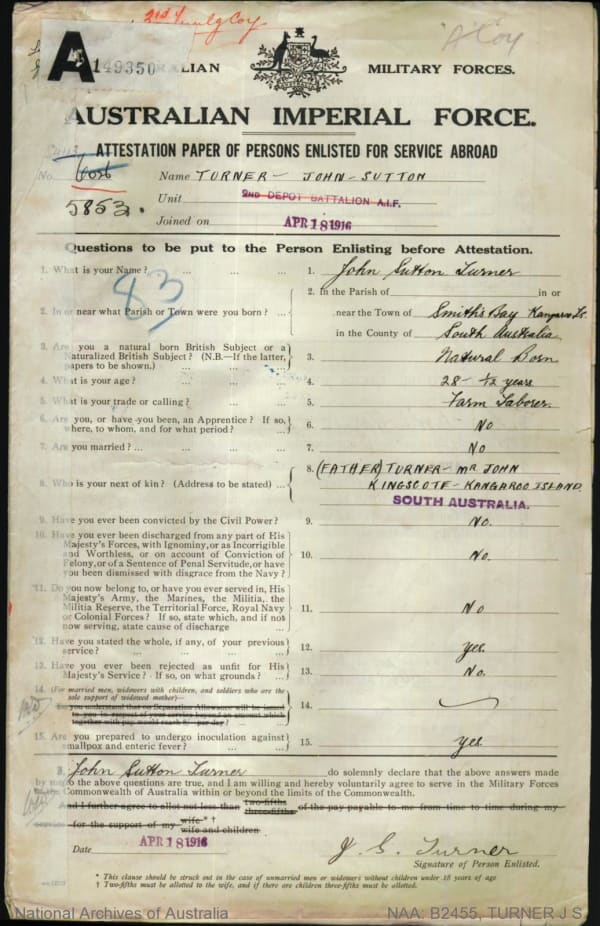 A
149350
A Coy
MILITARY FORCES.
AUSTRALIAN IMPERIAL FORCE.
ATTESTATION PAPER OF PERSONS ENLISTED FOR SERVICE ABROAD
No.
5853.
Name TURNER - JOHN - SUTTON
Unit 2ND DEPOT BATTALION A.I.F.
Joined on APR 18 1916
Questions to be put to the Person Enlisting before Attestation.
83
1. What is your Name? ... ... ...
1. John Sutton Turner
2. In or near what Parish or Town were you born? ...
2. In the Parish of in or
near the Town of Smith's Bay Kangaroo Is.
in the County of South Australia
3. Are you a natural born British Subject or a
Naturalized British Subject? (N.B.—If the latter,
papers to be shown.) ... ...
3. Natural Born
4. What is your age? ... ... ...
4. 28 - 1/12 years
5. What is your trade or calling? ... ...
5. Farm Laborer.
6. Are you, or have you been, an Apprentice? If so,
where, to whom, and for what period? ...
6. No
7. Are you married? ... ... ... ...
7. No
8. Who is your next of kin? (Address to be stated) ...
8. (FATHER) TURNER - MR JOHN
KINGSCOTE - KANGAROO ISLAND
SOUTH AUSTRALIA.
9. Have you ever been convicted by the Civil Power?
9. No.
10. Have you ever been discharged from any part of His
Majesty's Forces, with Ignominy, or as Incorrigible
and Worthless, or on account of Conviction of
Felony, or of a Sentence of Penal Servitude, or have
you been dismissed with disgrace from the Navy?
10. No.
11. Do you now belong to, or have you ever served in, His
Majesty's Army, the Marines, the Militia, the
Militia Reserve, the Territorial Force, Royal Navy
or Colonial Forces? If so, state which, and if not
now serving, state cause of discharge
11. No
12. Have you stated the whole, if any, of your previous
service? ... ... ... ...
12. yes.
13. Have you ever been rejected as unfit for His
Majesty's Service? If so, on what grounds? ...
13. No.
14. (For married men, widowers with children, and soldiers who are the
sole support of widowed mother)—
Do you understand that no Separation Allowance will be issued
to you in respect of your service beyond an amount which
together with pay would reach 8/- per day?
14.
15. Are you prepared to undergo inoculation against
smallpox and enteric fever? ... ...
15. yes
I, John Sutton Turner do solemnly declare that the above answers made
by me to the above questions are true, and I am willing and hereby voluntarily agree to serve in the Military Forces
of the Commonwealth of Australia within or beyond the limits of the Commonwealth.
And I further agree to allot not less than two-fifths three-fifths of the pay payable to me from time to time during my
service for the support of my wife* † wife and children.
Date APR 18 1916
J. S. Turner
Signature of Person Enlisted.
* This clause should be struck out in the case of unmarried men or widowers without children under 18 years of age
† Two-fifths must be allotted to the wife, and if there are children three-fifths must be allotted.
National Archives of Australia
NAA: B2455, TURNER J S